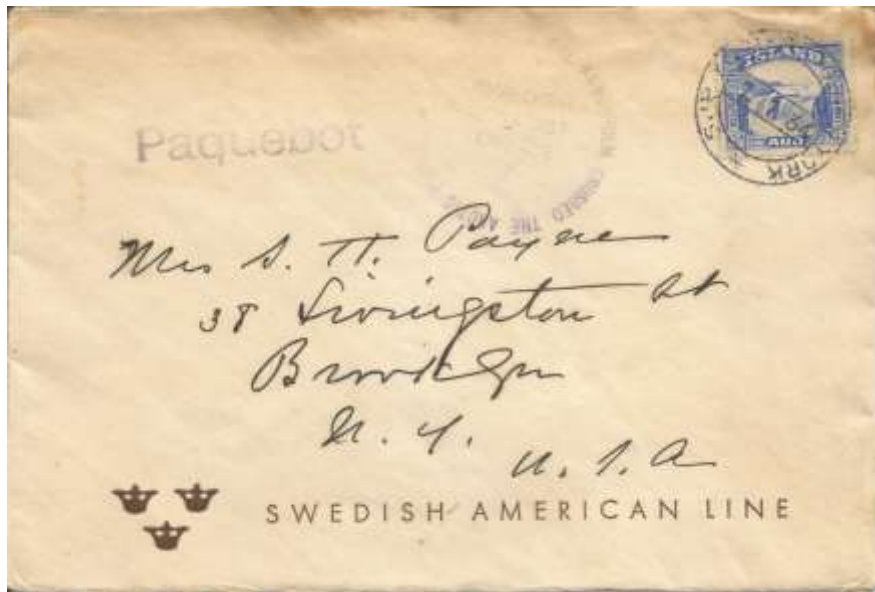 Paquebot
ISLAND
AUR
YORK
CROSSED THE
Mrs S. H. Payne
38 Livingston St
Brooklyn
N. Y.
U. S. A
SWEDISH AMERICAN LINE